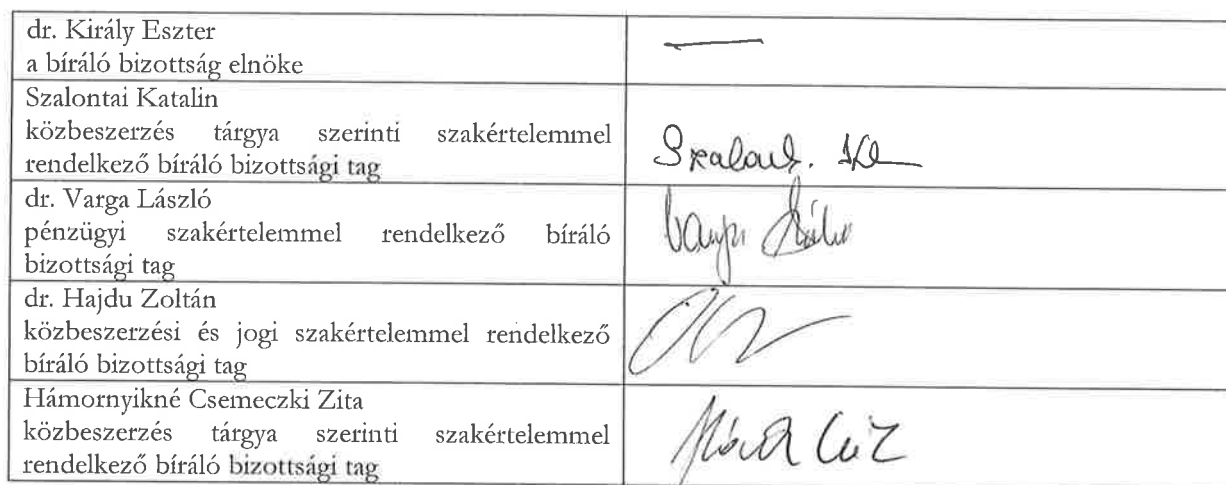 dr. Király Eszter
a bíráló bizottság elnöke
Szalontai Katalin
közbeszerzés tárgya szerinti szakértelemmel
rendelkező bíráló bizottsági tag
dr. Varga László
pénzügyi szakértelemmel rendelkező bíráló
bizottsági tag
dr. Hajdu Zoltán
közbeszerzési és jogi szakértelemmel rendelkező
bíráló bizottsági tag
Hámornyikné Csemeczki Zita
közbeszerzés tárgya szerinti szakértelemmel
rendelkező bíráló bizottsági tag